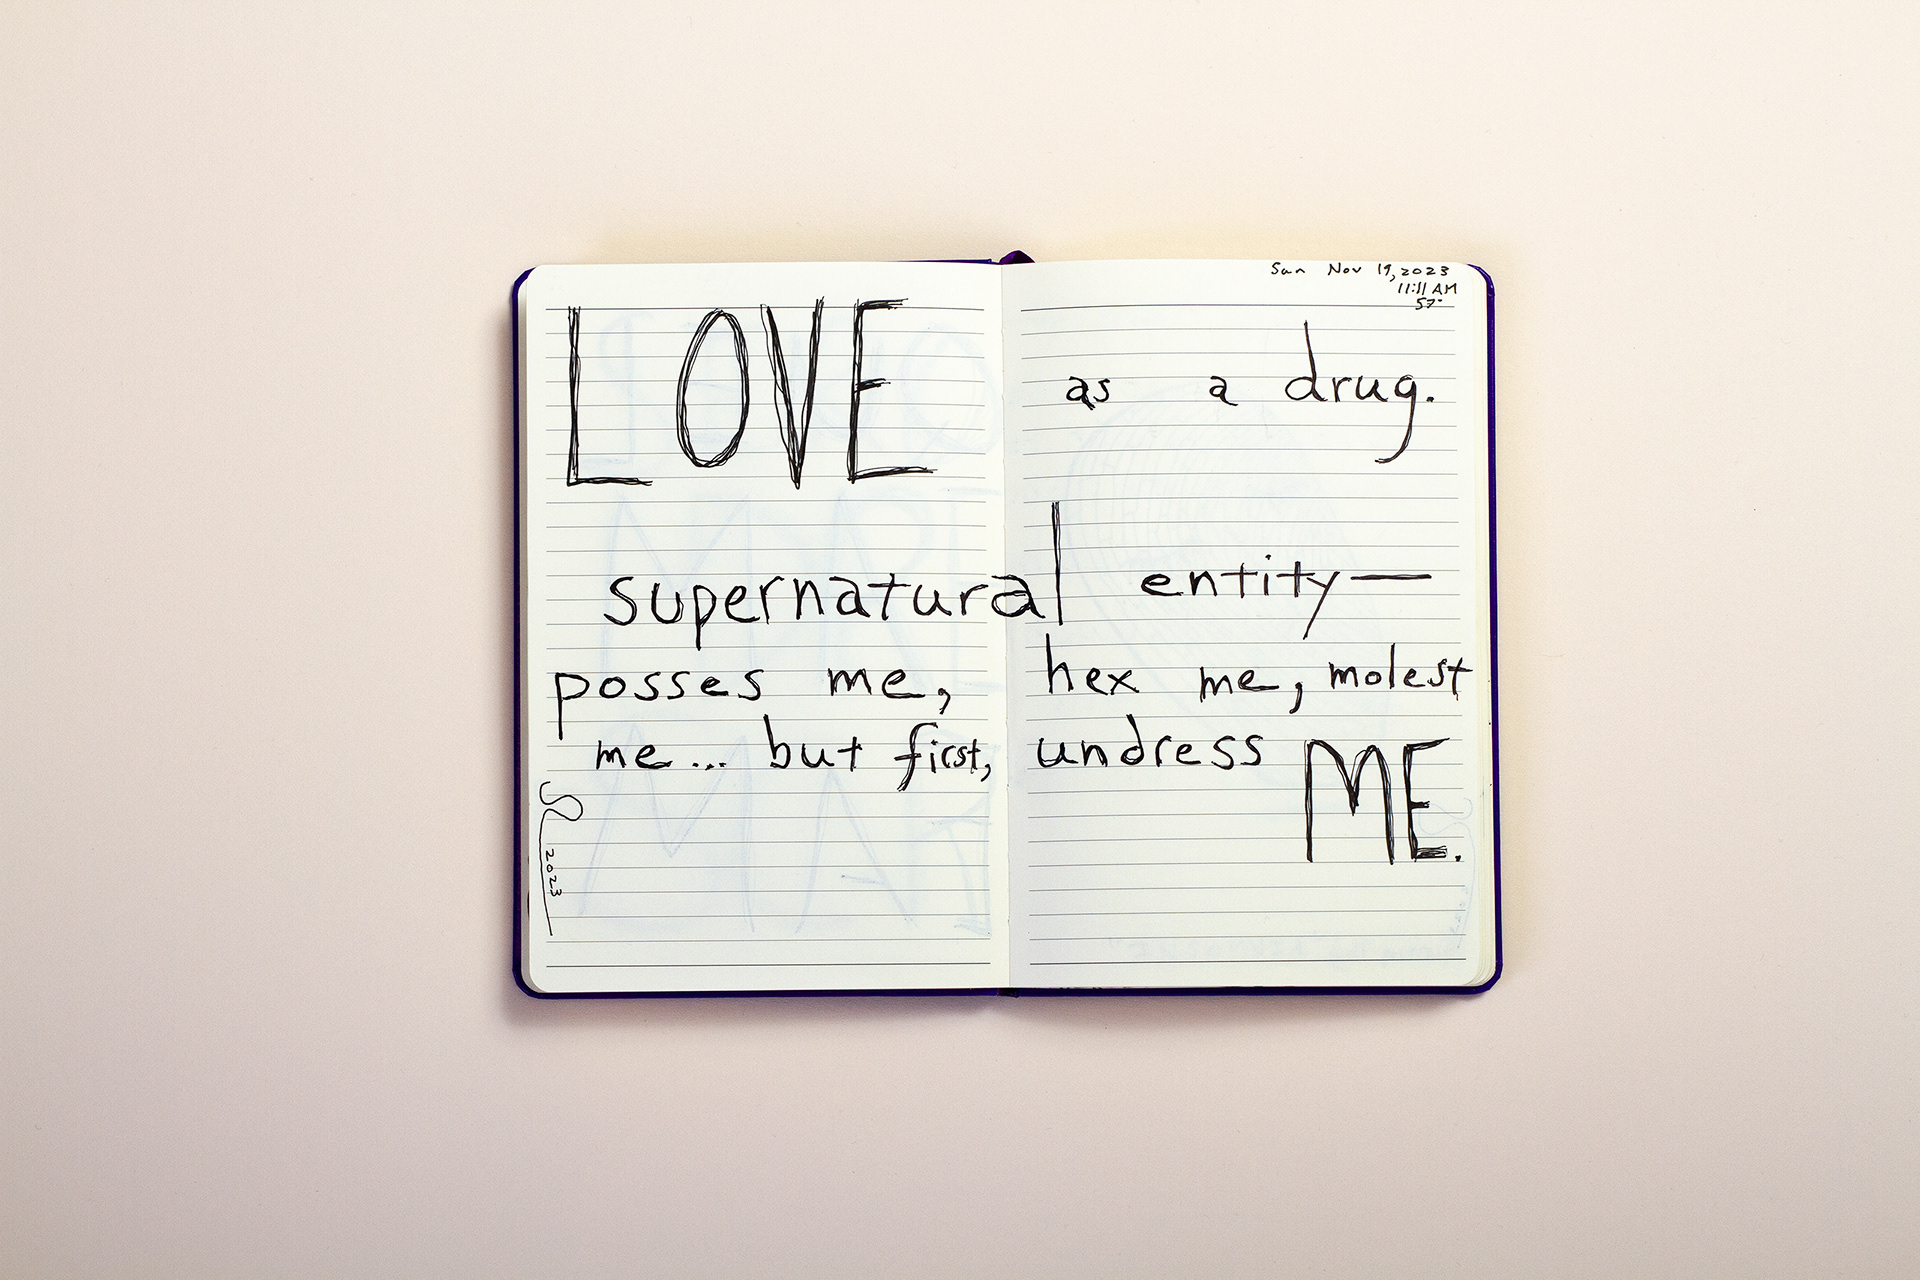 Sun Nov 19, 2023
11:11 AM
57°
LOVE as a drug.
supernatural entity—
posses me, hex me, molest
me... but first, undress ME.
2023